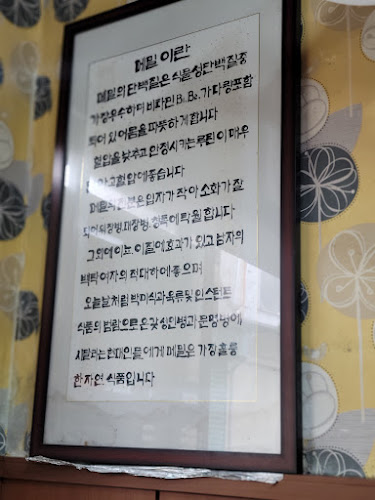 메밀이란
메밀의 단백질은 식물성단백질중
가장우수하며 비타민 B₁, B₂, 가 다량포함
되어 있어몸을 따뜻하게합니다
혈압을 낮추고 안정시키는루틴이 매우
고혈압에좋습니다
메밀의 분은입자가 작아 소화가 잘
되어 위장병, 대장병, 항목에 탁월합니다
그외에 이뇨, 이질에효과가 있고 남자의
백탁 여자의 적대하에 좋으며
오늘날처럼 백미식과 육류및인스턴트
식품의 범람으로 온갖성인병과 문명병에
시달리는현대인들에게 메밀은 가장훌륭
한자연식품입니다